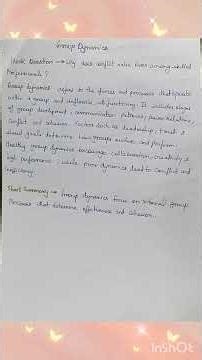 Group Dynamics
Work Question → Why does conflict arise even among skilled
Professionals?
Group dynamics refers to the forces and processes that operate
within a group and influence its functioning. It includes stages
of group development, communication patterns, power relations,
Conflict and cohesion. Factors such as leadership, trust &
shared goals determine how groups evolve and perform.
Healthy group dynamics encourage collaboration, creativity &
high performance, while poor dynamics lead to conflict and
inefficiency.
Short Summary → Group dynamics focus on internal group
Processes that determine effectiveness and cohesion.
InShOt